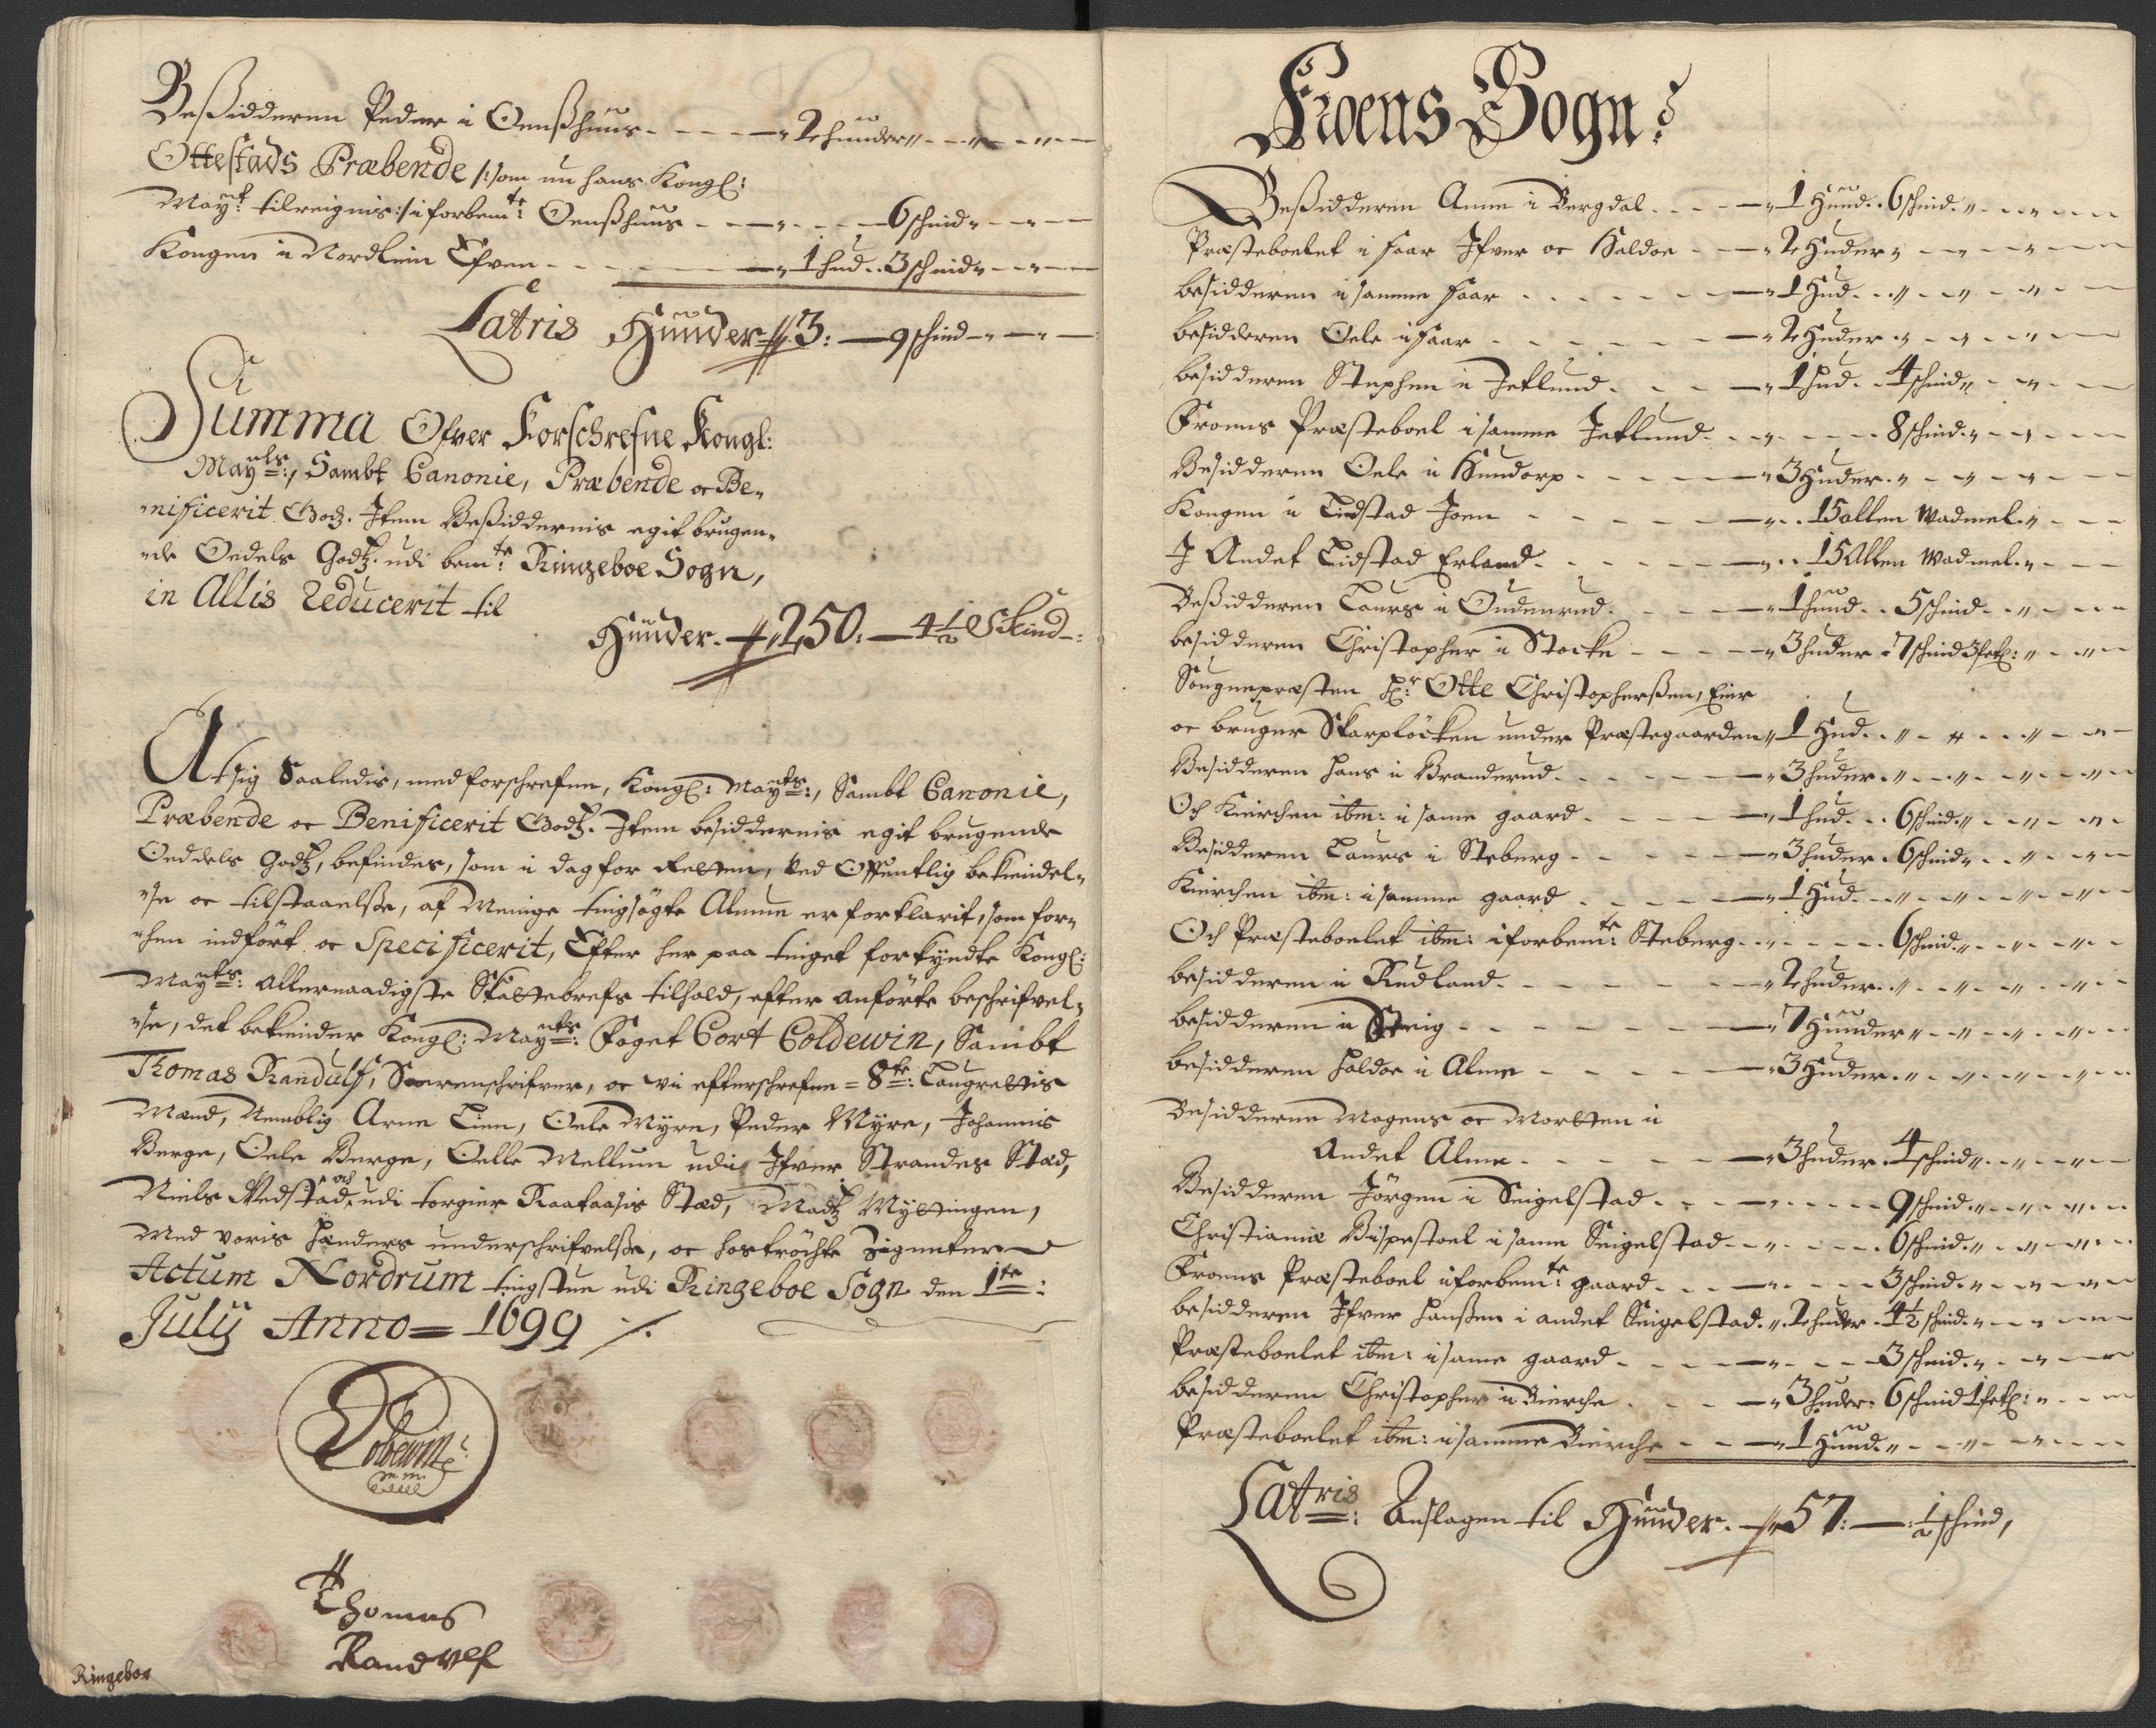 Beßidderen Peder i Oenßhuus - - - - 2 huuder „ - - „ - - „ - -
Ottestads Præbende /: som nu hans Kongl:
Mayt: tilreignis :/ i forbemte: Oenßhuus - - - „ - - - 6 schind „ - - „ - -
Kongen i Nordlien Efven - - - - - - „ 1 hud .. 3 schind „ - - „ - -
Latris Huuder # 3: — 9 schind - „ - „ -
Summa Ofver Forschrefne Kongl:
Mayts:, Sambt Canonie, Præbende oc Be„
„nificerit Godz. Item Beßiddernis egit brugen„
„de Oedels Godtz. udi bemte: Ringeboe Sogn,
in Allis Reducerit til
Huuder. # 250: — 4 1/2 Skind -:
At sig Saaledis, med forschrefne, Kongl: Mayts:, Sambt Canonie,
Præbende oc Benificerit Godtz. Item besiddernis egit brugende
Oeddels Godtz, befindes, som i dag for Retten, ved Offentlig bekiendel„
„se oc tilstaaelße, af Menige tingsögte Almue er forklarit, som for„
„hen indfört oc Specificerit, Efter her paa tinget forkyndte Kongl:
Mayts: allernaadigste Skattebrefs tilhold, efter anförte beschrifvel„
„se, det bekiender Kongl: Mayts: Foget Cort Coldewin, Sambt
Thomas Randulf, Sorenschrifver, oc vi efterschrefne = 8te: Laugrettis
Mænd, Nemblig Arne Lien, Oele Myre, Peder Myre, Johannis
Berge, Oele Berge, Oelle Mellum udi Ifver Strandes Stæd,
Niels Vedstad, och udi torgier Raafaasis Stæd, Madtz Myttingen,
Med voris hænders underschrifvelße, oc hoströchte Zigneter
Actum Nordrum tingstue udi Ringeboe Sogn den 1te:
July Anno = 1699 ./.
Coldewin
m. m.
Thomas
Randvlf
Ringeboe
Froens Sogn:
Beßidderen Anne i Bergdal - - - „ 1 Huud .. 6 schind. „ - - „ - -
Præsteboelet i Faar Ifver oc Haldor - - „ 2 Huder „ - - „ - „ - -
besidderen i samme Faar - - - - - „ 1 Hud .. „ - „ - „ - -
besidderen Oele i Faar - - - - - „ 2 Huder „ - „ - „ - -
besidderen Stephen i Jetlund - - - „ 1 Hud .. 4 schind „ - „ - -
Froens Præsteboel i samme Jetlund - - „ - - - 8 schind. „ - „ - -
Besidderen Oele i Hundorp - - - - „ 3 Huder. „ - „ - „ - -
Kongen i Lidstad Joen - - - - - „ .. 15 allen Wadmel. „ - -
I Andet Lidstad Erland - - - - - „ .. 15 Allen Wadmel. „ - -
Beßidderen Laurs i Oudenrud - - - „ 1 huud .. 5 schind .. „ - - -
besidderen Christopher i Stocke - - - „ 3 huder . 7 schind 3 fetl: „ - „ -
Sougnepræsten hr: Otte Christopherßen, Eier
oc bruger Skarplöcken under Præstegaarden „ 1 Hud .. „ - „ - „ - „ -
Besidderen Hans i Branderud - - - - „ 3 huder. „ - „ - „ - „ -
Och Kierchen ibm: i same gaard - - - „ 1 hud .. 6 schind. „ - „ - „ -
Besidderen Laurs i Steberg - - - - „ 3 huder . 6 schind „ - „ - „ -
Kierchen ibm: i samme gaard - - - - „ 1 Hud .. „ - „ - „ - „ -
Och Præsteboelet ibm: i forbemte: Steberg - „ - - - 6 schind. „ - „ - „ -
besidderen i Rudland - - - - - „ 2 huder. „ - „ - „ - „ -
besidderen i Steig - - - - - - „ 7 Huuder „ - „ - „ - „ -
besidderen Haldor i Alme - - - - „ 3 Huder. „ - „ - „ - „ -
Besidderne Mogens oc Morten i
Andet Alme - - - - - „ 3 huder . 4 schind „ - „ - „ -
Besidderen Jörgen i Seigelstad - - - „ - - - 9 schind. „ - „ - „ -
Christianiæ Bispestoel i same Seigelstad - - „ - - - 6 schind. „ - „ - „ -
Froens Præsteboel i forbemte: gaard - - - „ - - - 3 schind. „ - „ - „ -
besidderen Ifver Hanßen i andet Seigelstad. „ 2 huder . 4 1/2 schind. „ - „ - -
Præsteboelet ibm: i same gaard - - - „ - - - 3 schind. „ - „ - -
besidderen Christopher i Kierche - - - „ 3 huder. 6 schind 1 fetl: „ - - -
Præsteboelet ibm: i samme Kierche - - „ 1 Huud. „ - „ - „ - -
Latris: Anslagen til Huuder. # 57: — : 1/2 schind,